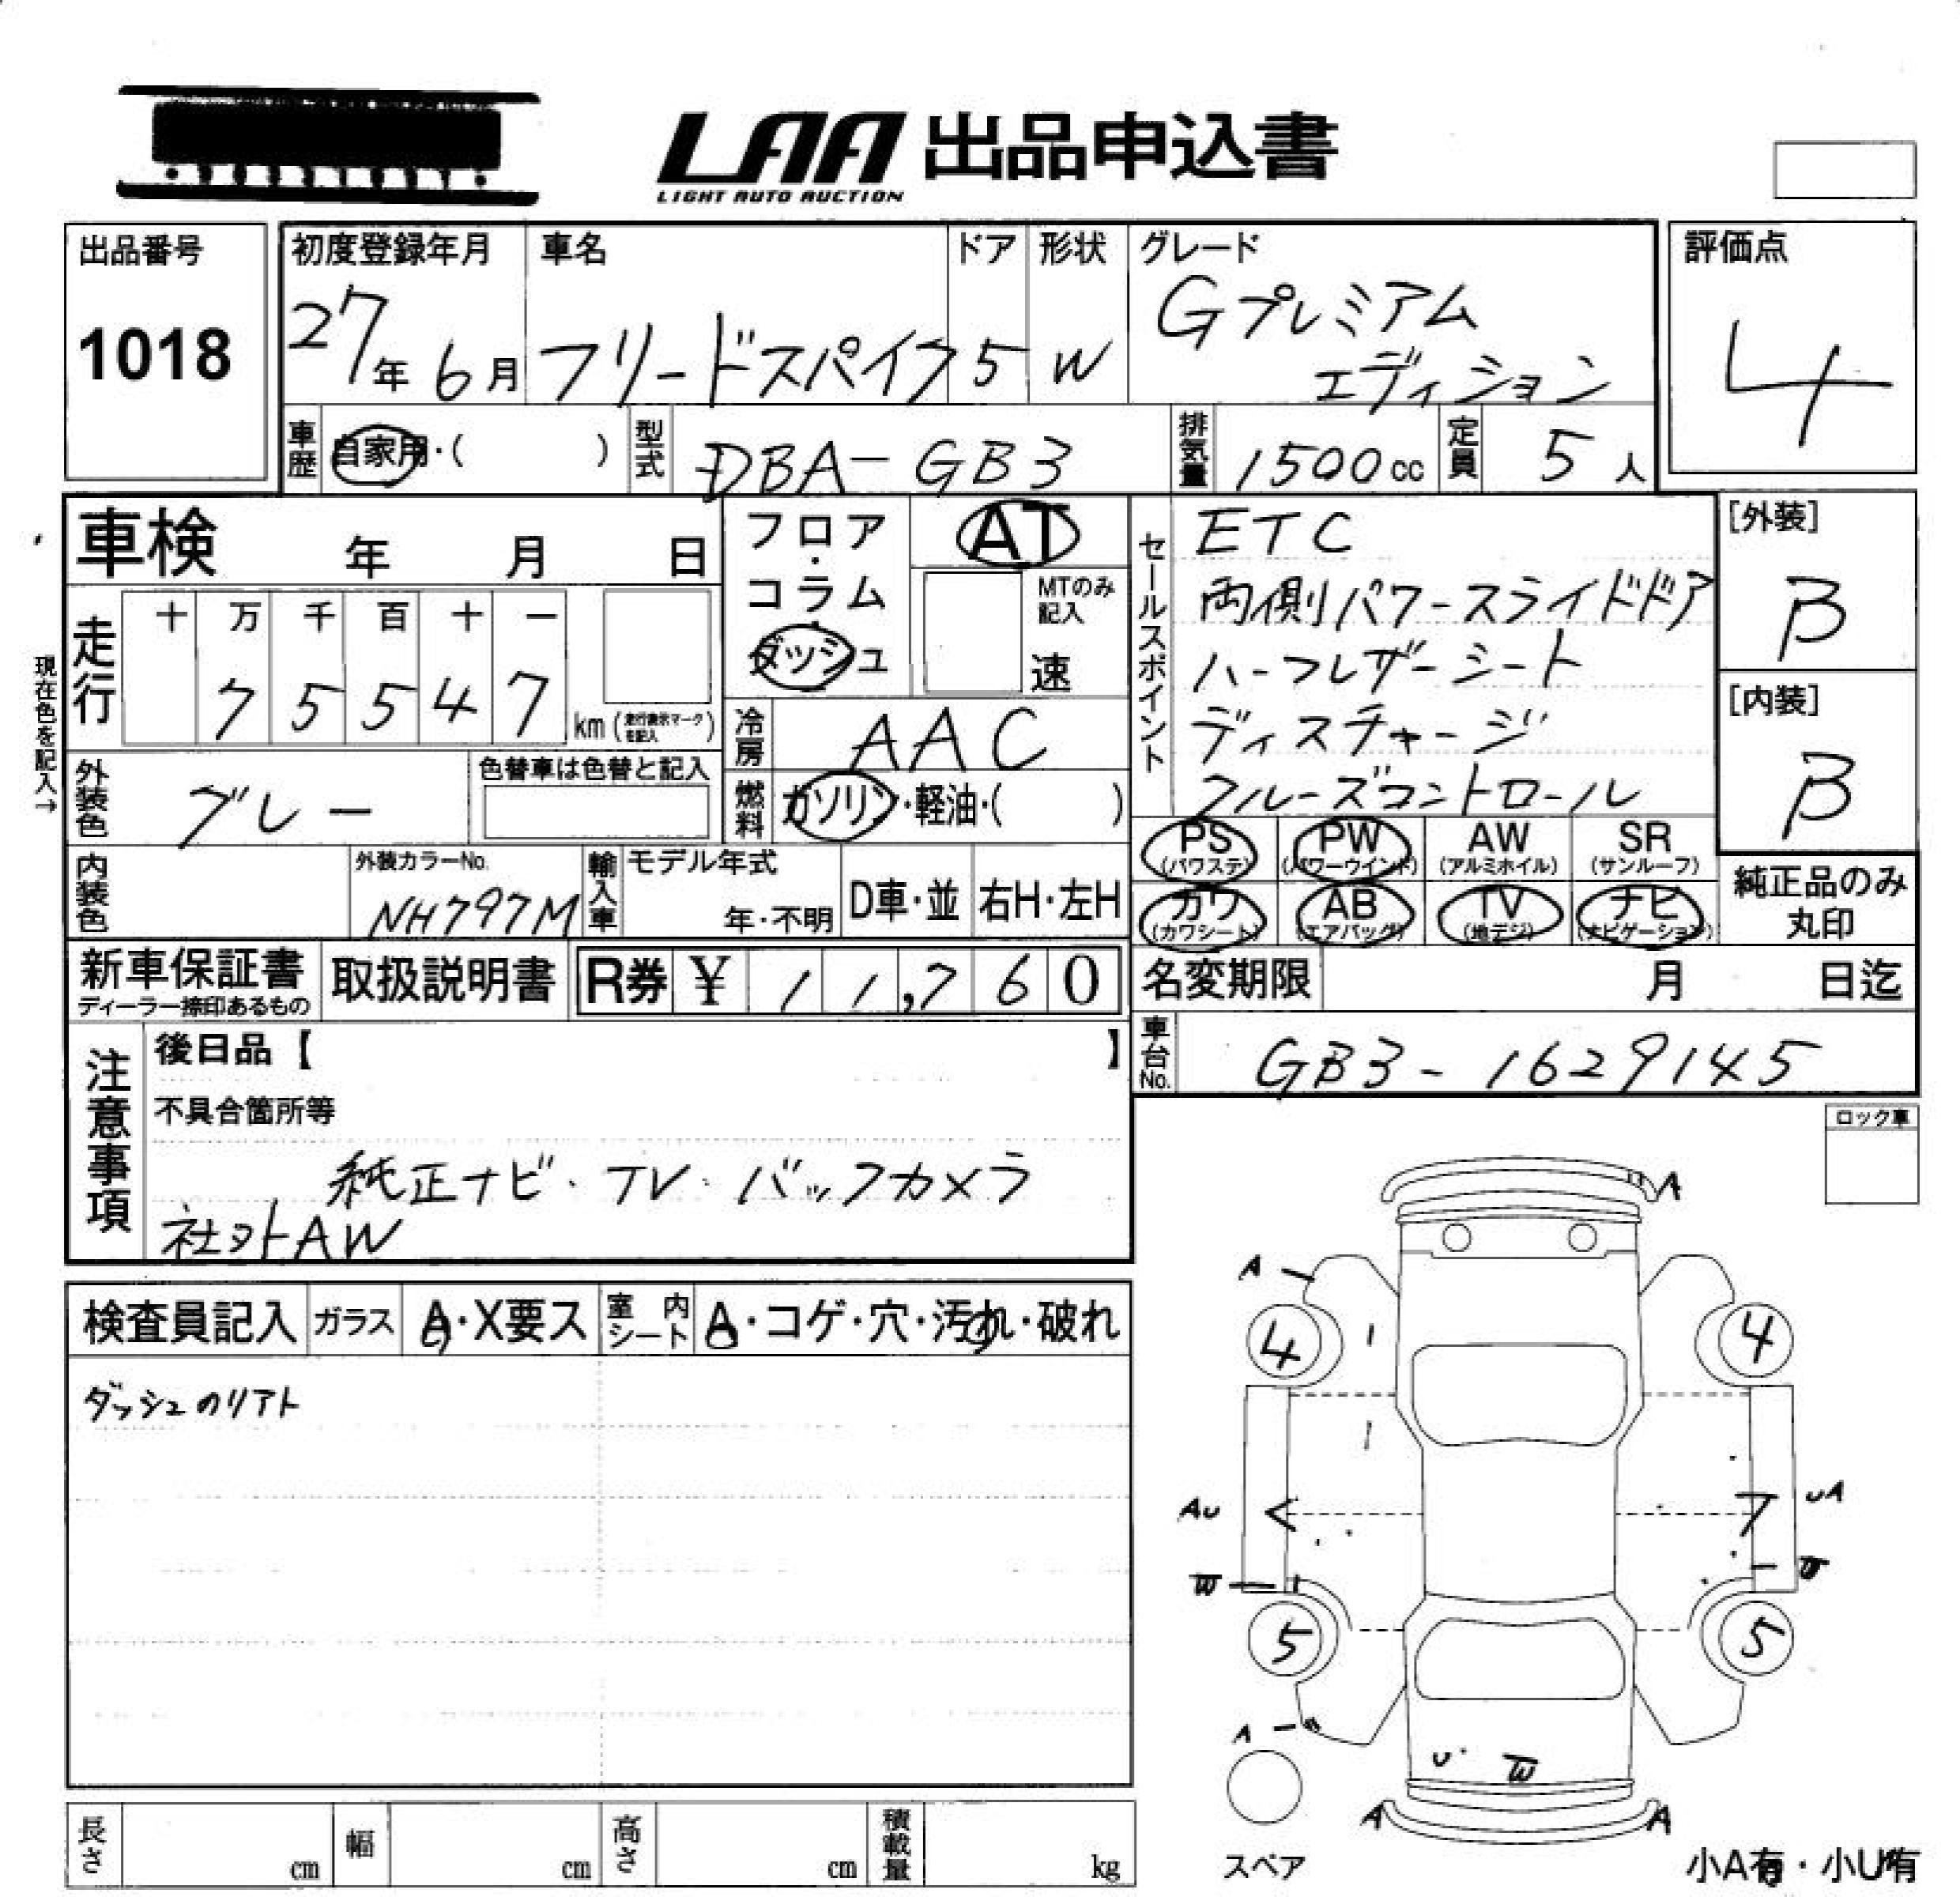 LAA 出品申込書
LIGHT AUTO AUCTION
出品番号
1018
初度登録年月
27年 6月
車名
フリードスパイク
ドア
5
形状
W
グレード
Gプレミアム
エディション
評価点
4
車歴
自家用・( )
型式
DBA-GB3
排気量
1500cc
定員
5人
車検 年 月 日
フロア
・
コラム
・
ダッシュ
AT
MTのみ
記入
速
セールスポイント
ETC
両側パワースライドドア
ハーフレザーシート
ディスチャージ
クルーズコントロール
[外装]
B
[内装]
B
現在色を記入→
走行
十 万 千 百 十 一
7 5 5 4 7
km (走行表示マークを記入)
冷房
AAC
外装色
グレー
色替車は色替と記入
燃料
ガソリン・軽油・( )
PS
(パワステ)
PW
(パワーウインド)
AW
(アルミホイル)
SR
(サンルーフ)
カワ
(カワシート)
AB
(エアバッグ)
TV
(地デジ)
ナビ
(ナビゲーション)
純正品のみ
丸印
内装色
外装カラーNo.
NH797M
輸入車
モデル年式
年・不明
D車・並
右H・左H
新車保証書
ディーラー捺印あるもの
取扱説明書
R券 ¥ 11,760
名変期限 月 日迄
車台No.
GB3-1629145
注意事項
後日品【 】
不具合箇所等
純正ナビ・TV・バックカメラ
社外AW
ロック車
検査員記入
ガラス
A・X要ス
室内
シート
A・コゲ・穴・汚れ・破れ
ダッシュのリアト
A
A
4
4
AU
UA
W
W
5
5
A
U
W
A
A
スペア
小A有・小U有
長さ cm
幅 cm
高さ cm
積載量 kg